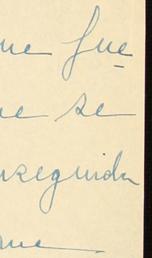 me fue
ue se
nseguida
me